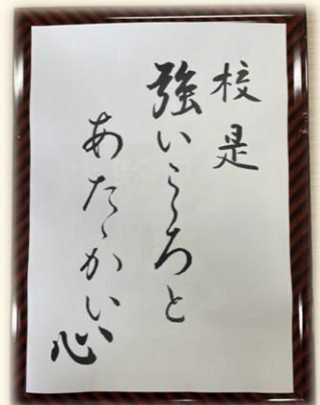 校是
強いこゝろと
あたゝかい心